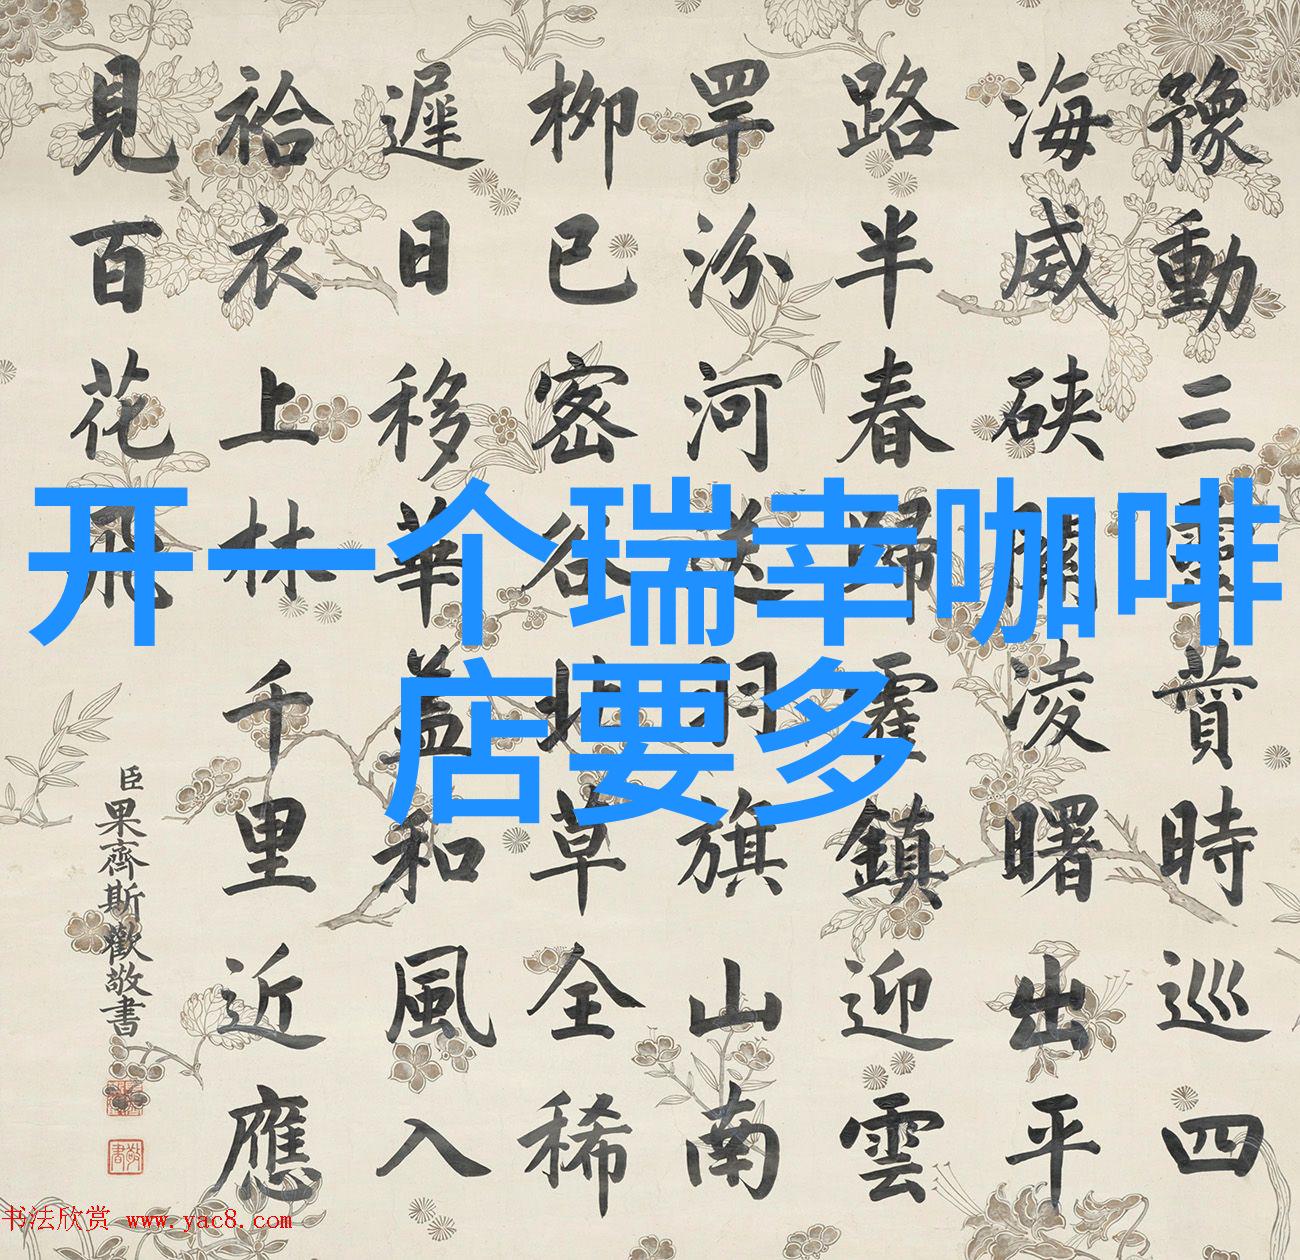 开一个瑞幸咖啡
店要多
豫動三靈賁時巡四
海威硤關凌曙出平
路半春歸霍鎮迎雲
䍐汾河送羽旗山南
柳已密谷北草全稀
遲日移華蓋和風入
袷衣上林千里近應
見百花飛
臣果齊斯歡敬書
敬書
书法欣赏 www.yac8.com